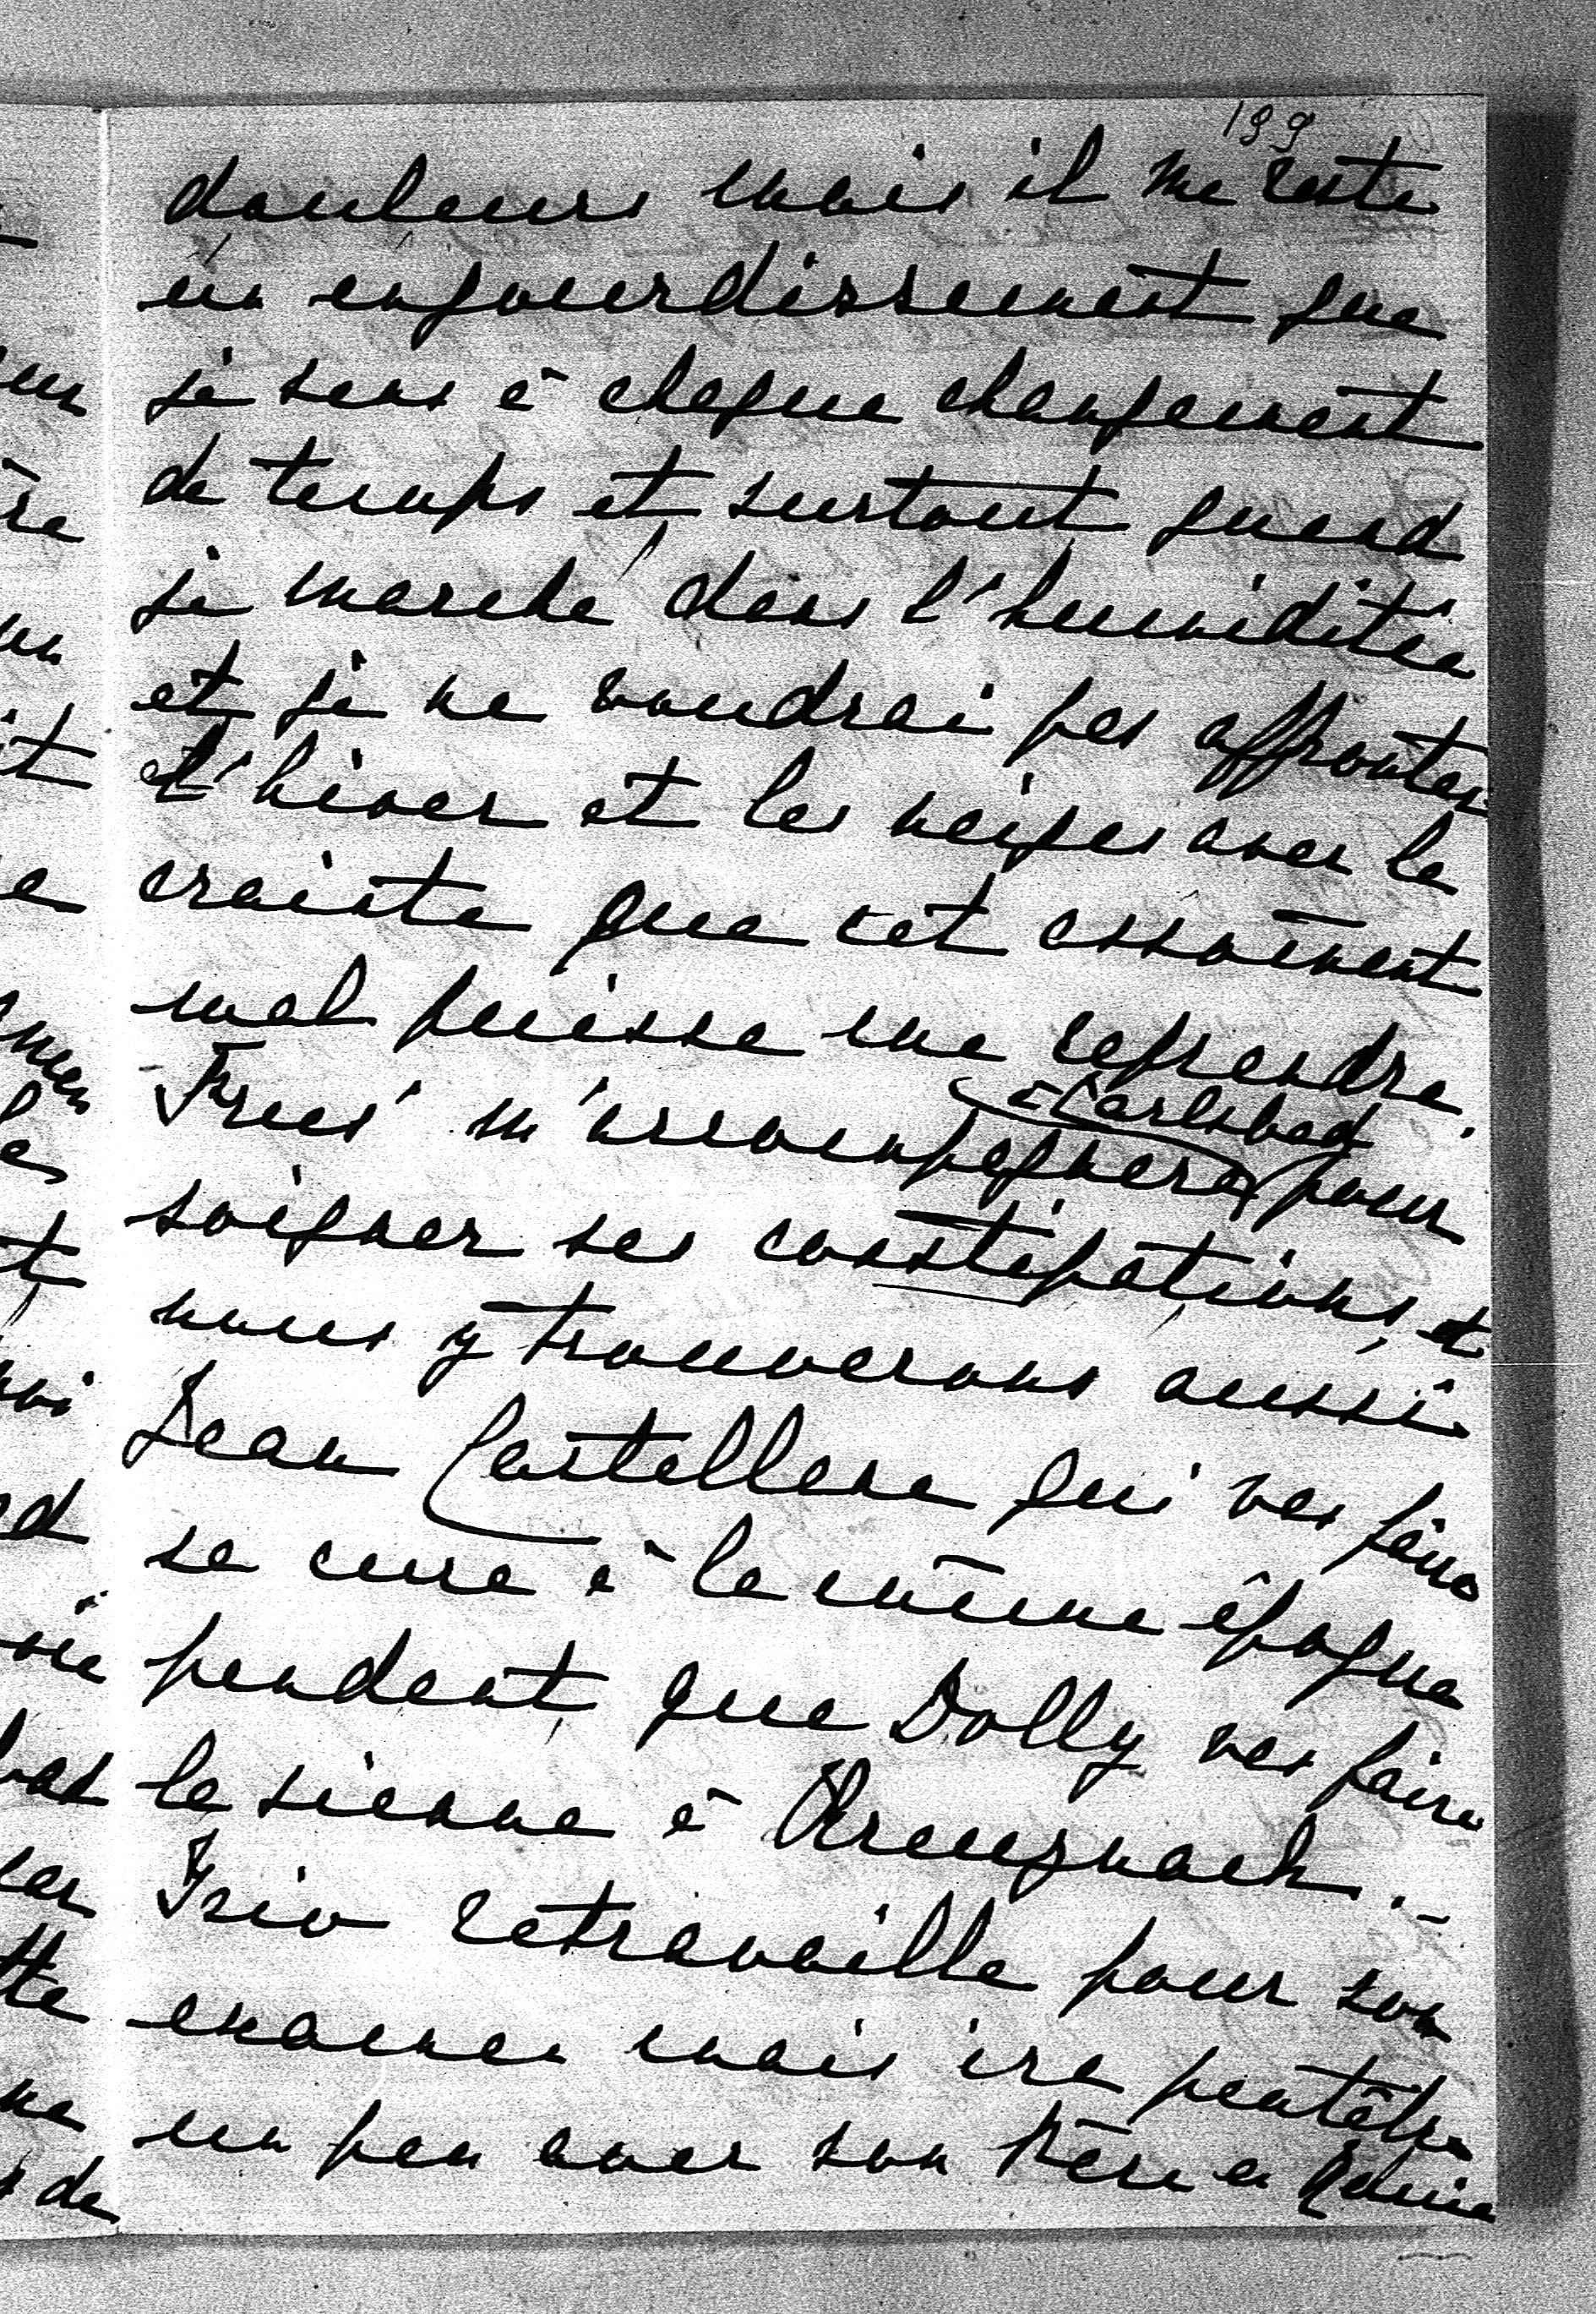 199
douleurs mais il me reste
un engourdissement que
je sens à chaque changement
de temps et surtout quand
je marche dans l'humiditée
et je ne voudrai pas affronter
l'hiver et les neiges avec la
crainte que cet assoment
mal puisse me reprendre.
à Carlsbad
m'accompagnera pour
soigner ses constipations, et
nous y trouverons aussi
Jean Castellane qui vas faire
sa cure à la même époque
pendant que Dolly vas faire
la sienne à Kreuznach. -
retravaille pour son
examen mais ira peutêtre
un peu avec son Père en